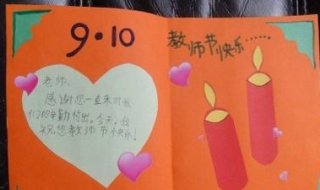 9·10
老师:
感谢您一直来对我
们的辛勤付出。今天,我
祝您教师节快乐!
教师节快乐······